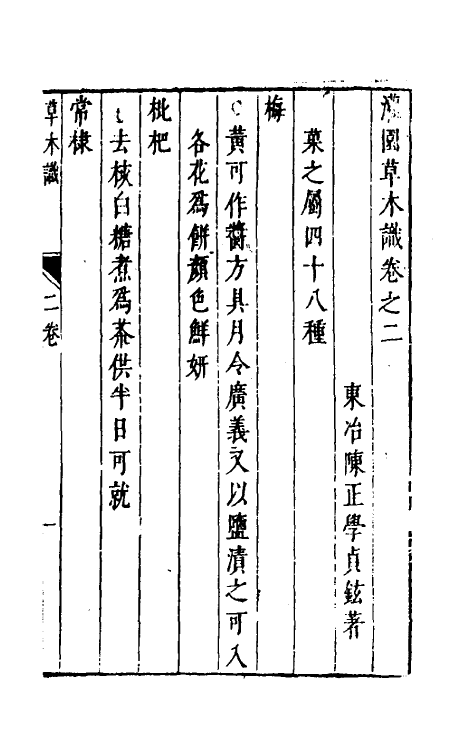 灌園草木識卷之二
東冶陳正學貞鉉著
菓之屬四十八種
梅
黃可作薺方具月令廣義又以鹽漬之可入
各花爲餅顏色鮮妍
枇杷
去核白糖煮爲茶供半日可就
常棣
草木識
二卷
一